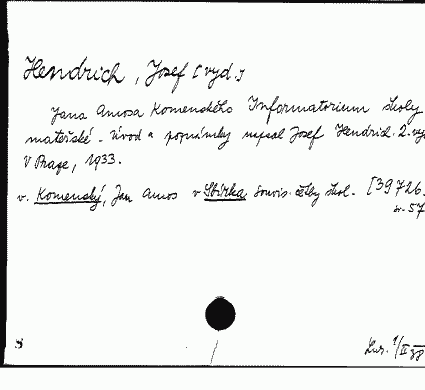 Hendrich, Josef [vyd.]
Jana Amosa Komenského Informatorium školy
mateřské. Úvod a poznámky napsal Josef Hendrich. 2. vy
V Praze, 1933.
v. Komenský, Jan Amos v Sbírka souvis. četby škol. [39726.
sv. 57